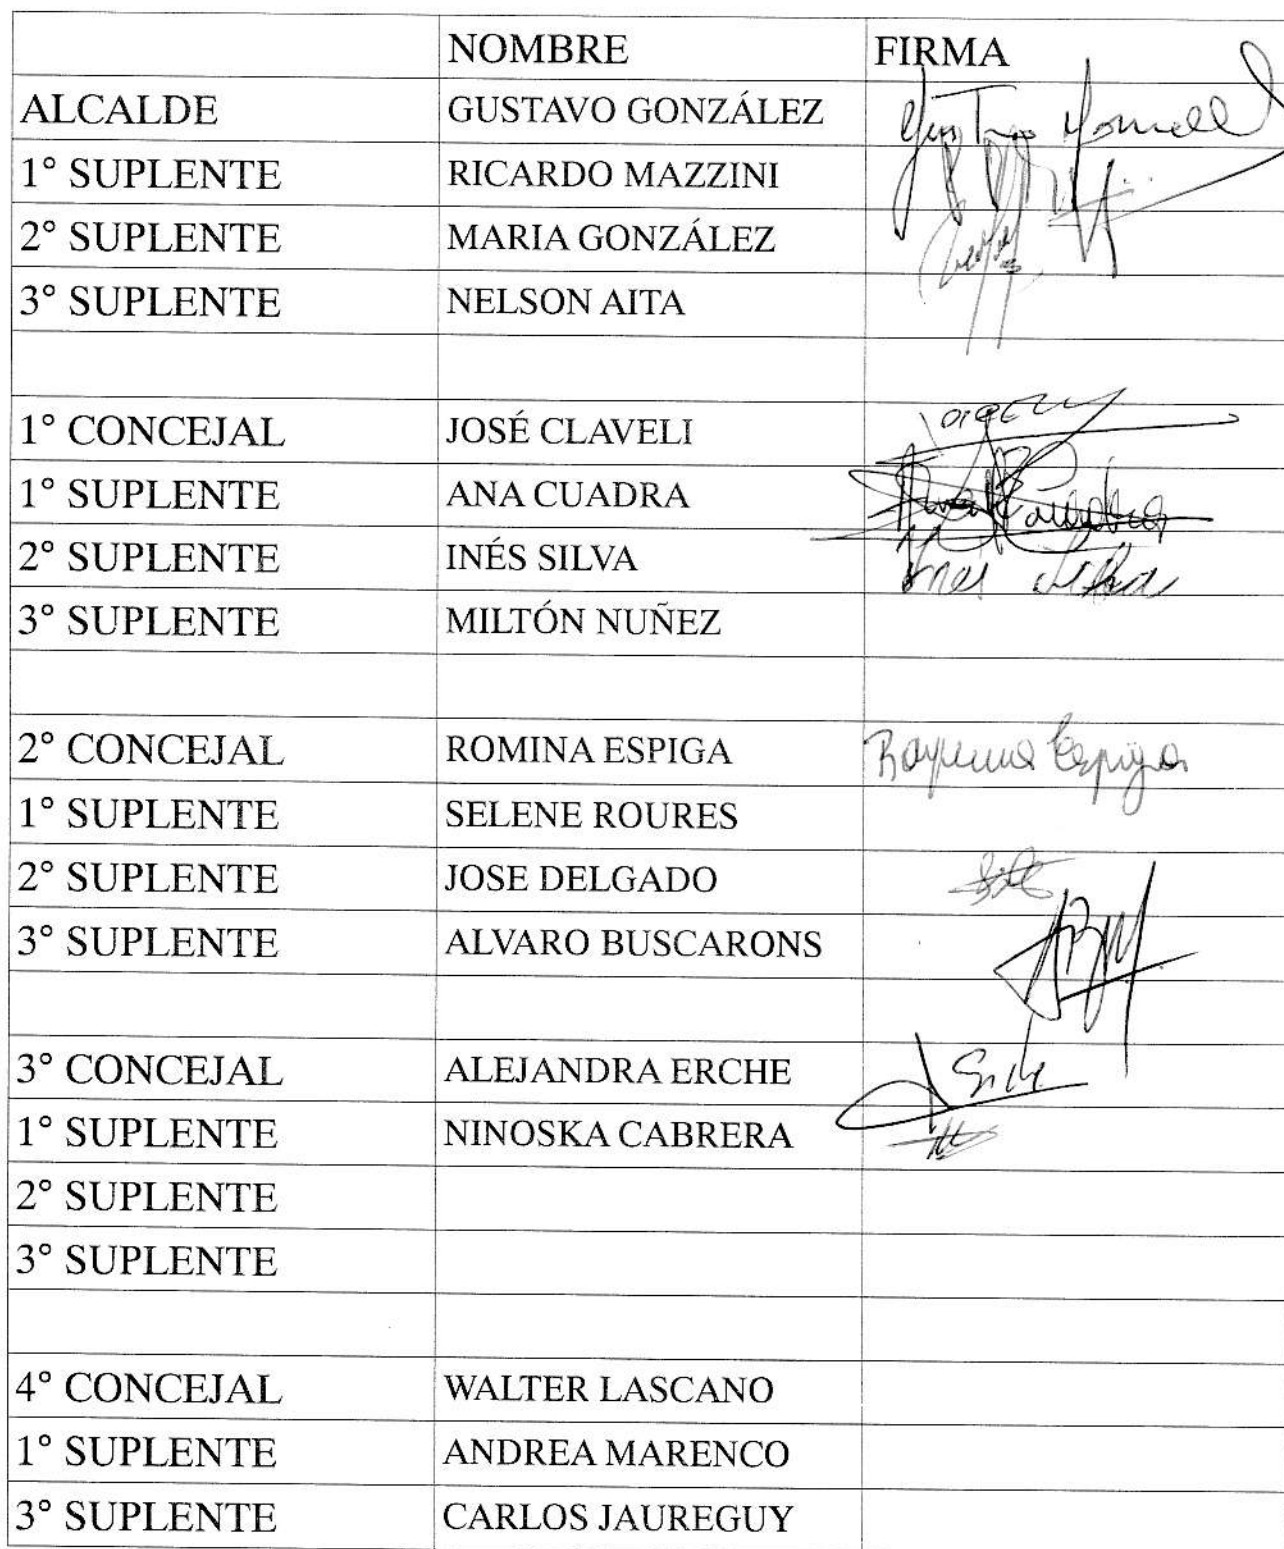 NOMBRE FIRMA
ALCALDE GUSTAVO GONZÁLEZ
1° SUPLENTE RICARDO MAZZINI
2° SUPLENTE MARIA GONZÁLEZ
3° SUPLENTE NELSON AITA
1° CONCEJAL JOSÉ CLAVELI
1° SUPLENTE ANA CUADRA
2° SUPLENTE INÉS SILVA Ines Silva
3° SUPLENTE MILTÓN NUÑEZ
2° CONCEJAL ROMINA ESPIGA Espiga
1° SUPLENTE SELENE ROURES
2° SUPLENTE JOSE DELGADO
3° SUPLENTE ALVARO BUSCARONS
3° CONCEJAL ALEJANDRA ERCHE
1° SUPLENTE NINOSKA CABRERA
2° SUPLENTE
3° SUPLENTE
4° CONCEJAL WALTER LASCANO
1° SUPLENTE ANDREA MARENCO
3° SUPLENTE CARLOS JAUREGUY